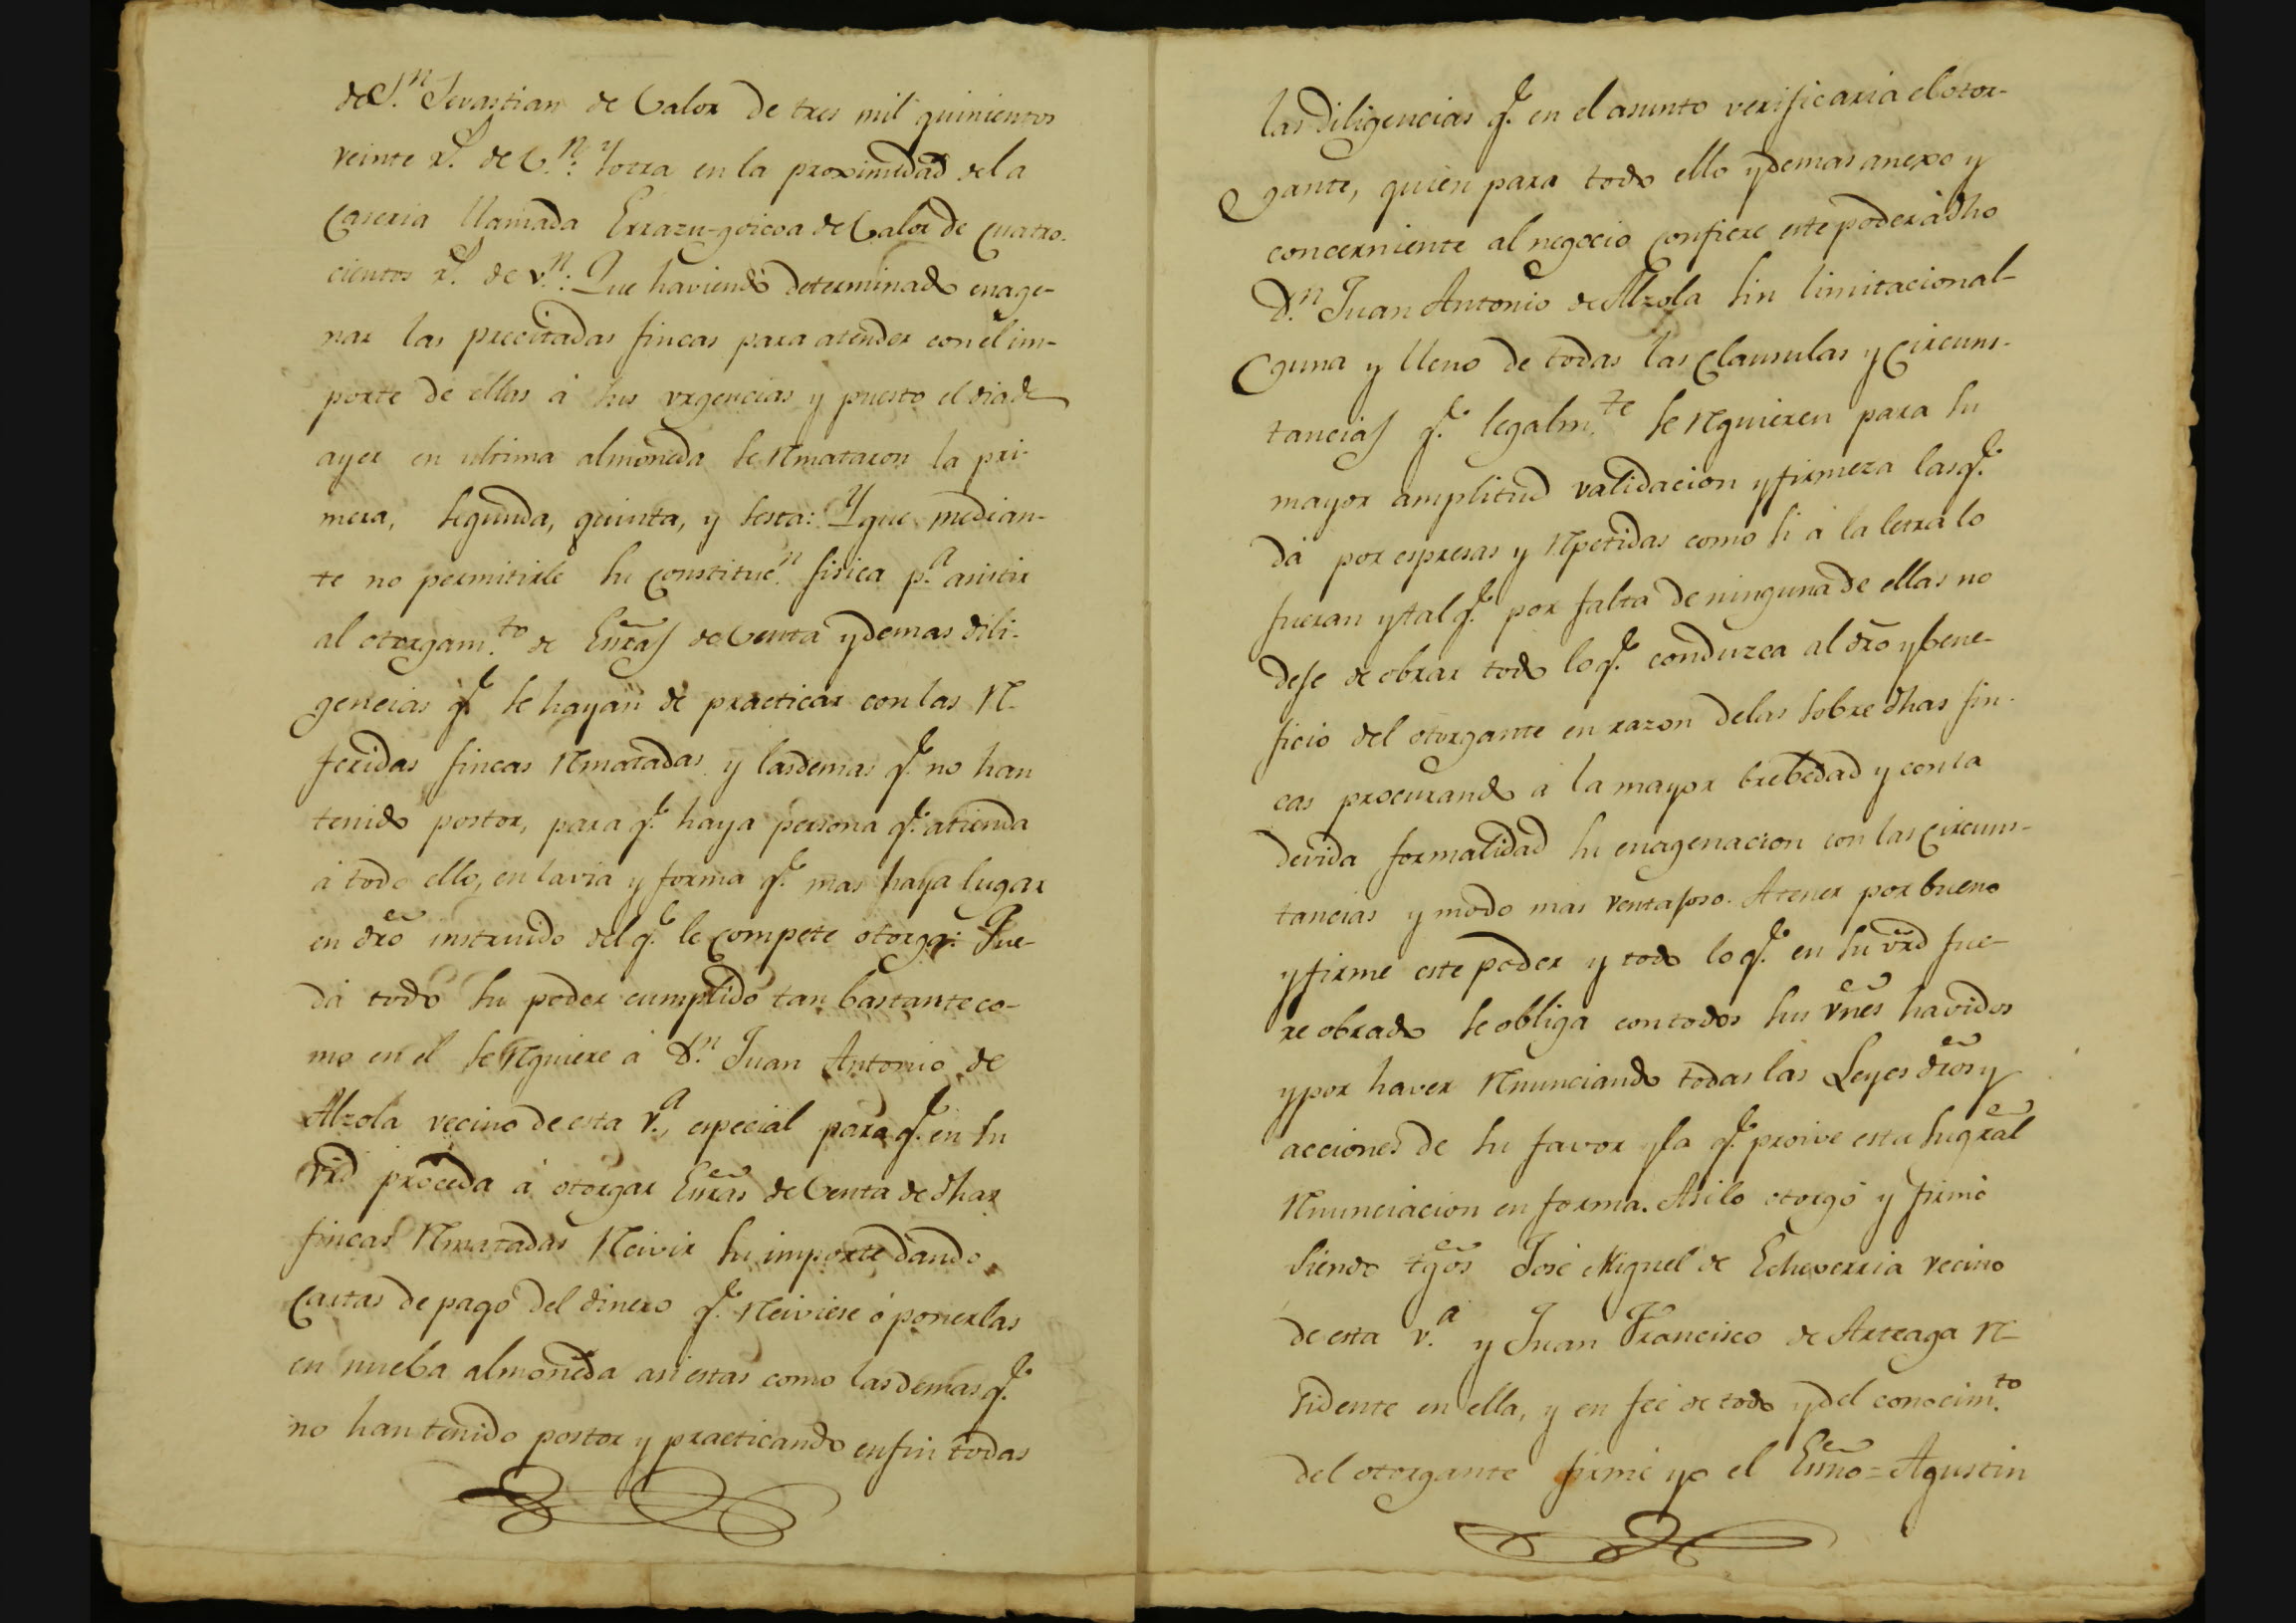 de S.n Sevastian de Valor de tres mil quinientos
veinte r.s de V.n: Y otra en la proximidad de la
Caseria llamada Errazu-goicoa de Valor de Cuatro-
cientos r.s de v.n: Que haviendo determinado enage-
nar las precitadas fincas para atender con el im-
porte de ellas á sus urgencias y puesto el dia de
ayer en ultima almoneda se Remataron la pri-
mera, segunda, quinta, y sesta: Y que median-
te no permitirle su Constituc.n fisica p.a asistir
al otorgam.to de Esrras de Venta y demas dili-
gencias q.e se hayan de practicar con las Re-
feridas fincas Rematadas y las demas q.e no han
tenido postor, para q.e haya persona q.e atienda
á todo ello, en la via y forma q.e mas haya lugar
en dro instruido del q.e le Compete otorga: Que
dá todo su poder cumplido tan bastante co-
mo en el se Requiere á D.n Juan Antonio de
Alzola vecino de esta v.a, especial para q.e en su
vrd proceda á otorgar Esrras de Venta de dhas
fincas Rematadas Recivir su importe dando
Cartas de pago del dinero q.e Reciviese ó ponerlas
en nueba almoneda asi estas como las demas q.e
no han tenido postor y practicando en fin todas
las diligencias q.e en el asunto verificaria el otor-
gante, quien para todo ello y demas anexo y
concerniente al negocio Confiere este poder á dho
D.n Juan Antonio de Alzola sin limitacion al-
guna y lleno de todas las Clausulas y Circuns-
tancias q.e legalm.te se Requieren para su
mayor amplitud validacion y firmeza las q.e
dá por espresas y Repetidas como si á la letra lo
fueran y tal q.e por falta de ninguna de ellas no
deje de obrar todo lo q.e conduzca al dro y bene-
ficio del otorgante en razon de las sobre dhas fin-
cas procurando á la mayor brebedad y con la
devida formalidad su enagenacion con las Circuns-
tancias y modo mas ventajoso. A tener por bueno
y firme este poder y todo lo q.e en su vrd fue-
re obrado se obliga con todos sus vnes havidos
y por haver Renunciando todas las Leyes dros y
acciones de su favor y la q.e proive esta su gral
Renunciacion en forma. Asi lo otorgó y firmó
siendo tgos José Miguel de Echeverria vecino
de esta v.a y Juan Francisco de Arteaga Re-
sidente en ella, y en feé de todo y del conocim.to
del otorgante firmé yo el Esno = Agustin